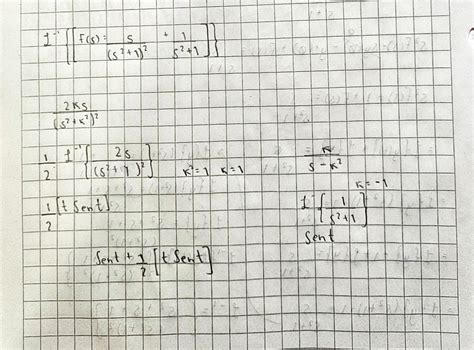 ℒ⁻¹ { [ F(s) = s/(s²+1)² + 1/(s²+1) ] }
2ks/(s²+k²)²
1/2 ℒ⁻¹ { 2s/(s²+1)² } k²=1 k=1
k/(s-k²)
k=-1
1/2 [t Sent]
ℒ⁻¹ { 1/(s²+1) }
Sent
Sent + 1/2 [t Sent]